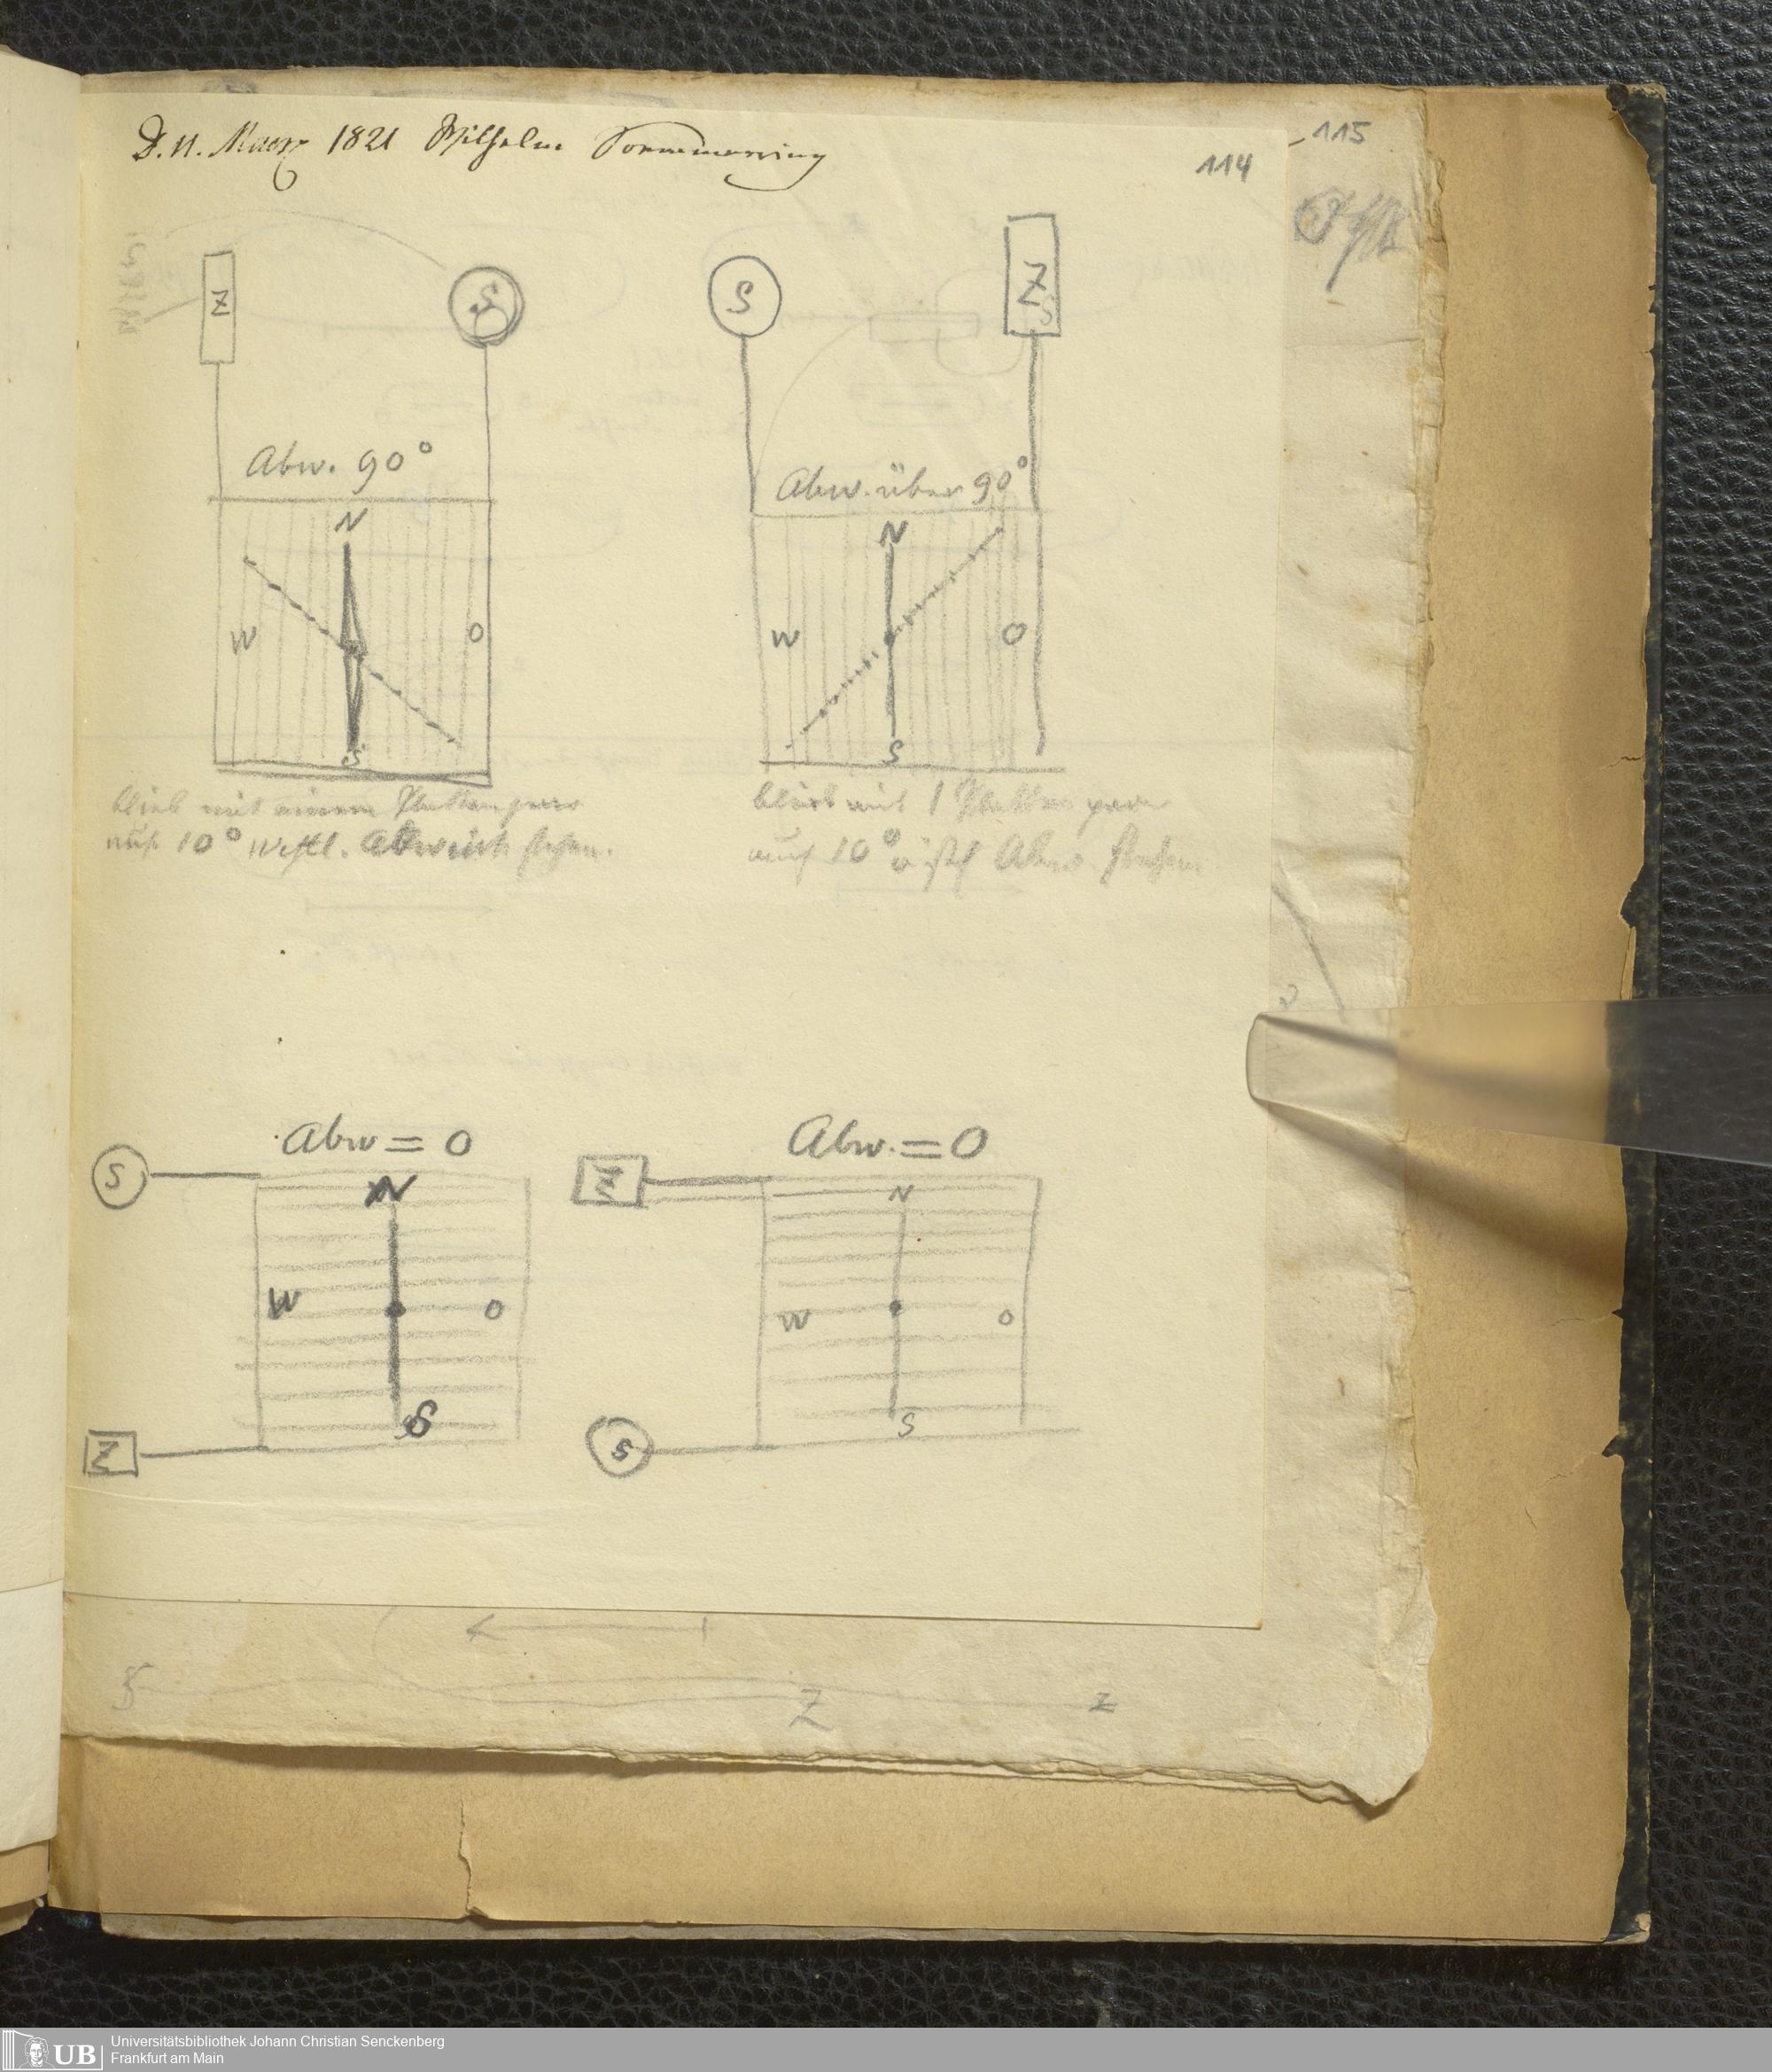 D. 11. Maerz 1821 Wilhelm Soemmerring
115
114
Z
S
S
Z
S
Abw. 90°
Abw. über 90°
N
N
W
O
W
O
S
S
blieb mit einem Plattenpaar
auf 10° westl. Abweich stehen.
blieb mit 1 Plattenpaar
auf 10° östl Abw. stehen
Abw = 0
Abw. = 0
S
Z
N
N
W
O
W
O
S
S
Z
S
S
Z
Z
UB
Universitätsbibliothek Johann Christian Senckenberg
Frankfurt am Main